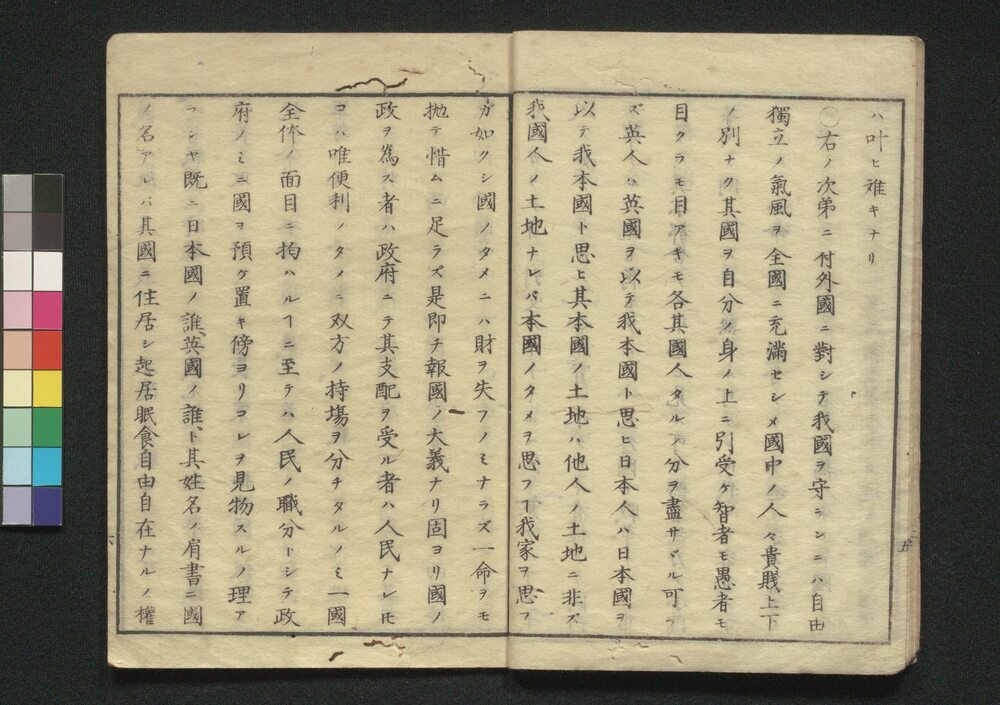 ハ叶ヒ難キナリ
○右ノ次第ニ付外國ニ對シテ我國ヲ守ランニハ自由
獨立ノ氣風ヲ全國ニ充滿セシメ國中ノ人々貴賤上下
ノ別ナク其國ヲ自分ノ身ノ上ニ引受ケ智者モ愚者モ
目クラモ目アキモ各其國人タルノ分ヲ盡サヾル可ラ
ズ英人ハ英國ヲ以テ我本國ト思ヒ日本人ハ日本國ヲ
以テ我本國ト思ヒ其本國ノ土地ハ他人ノ土地ニ非ズ
我國人ノ土地ナレバ本國ノタメヲ思フヿ我家ヲ思フ
ガ如クシ國ノタメニハ財ヲ失フノミナラズ一命ヲモ
抛テ惜ムニ足ラズ是即チ報國ノ大義ナリ固ヨリ國ノ
政ヲ爲ス者ハ政府ニテ其支配ヲ受ル者ハ人民ナレ𪜈
コハ唯便利ノタメニ双方ノ持塲ヲ分チタルノミ一國
全体ノ面目ニ拘ハルヿニ至テハ人民ノ職分トシテ政
府ノミニ國ヲ預ケ置キ傍ヨリコレヲ見物スルノ理ア
ランヤ既ニ日本國ノ誰、英國ノ誰、ト其姓名ノ肩書ニ國
ノ名アレバ其國ニ住居シ起居眠食自由自在ナルノ權
五